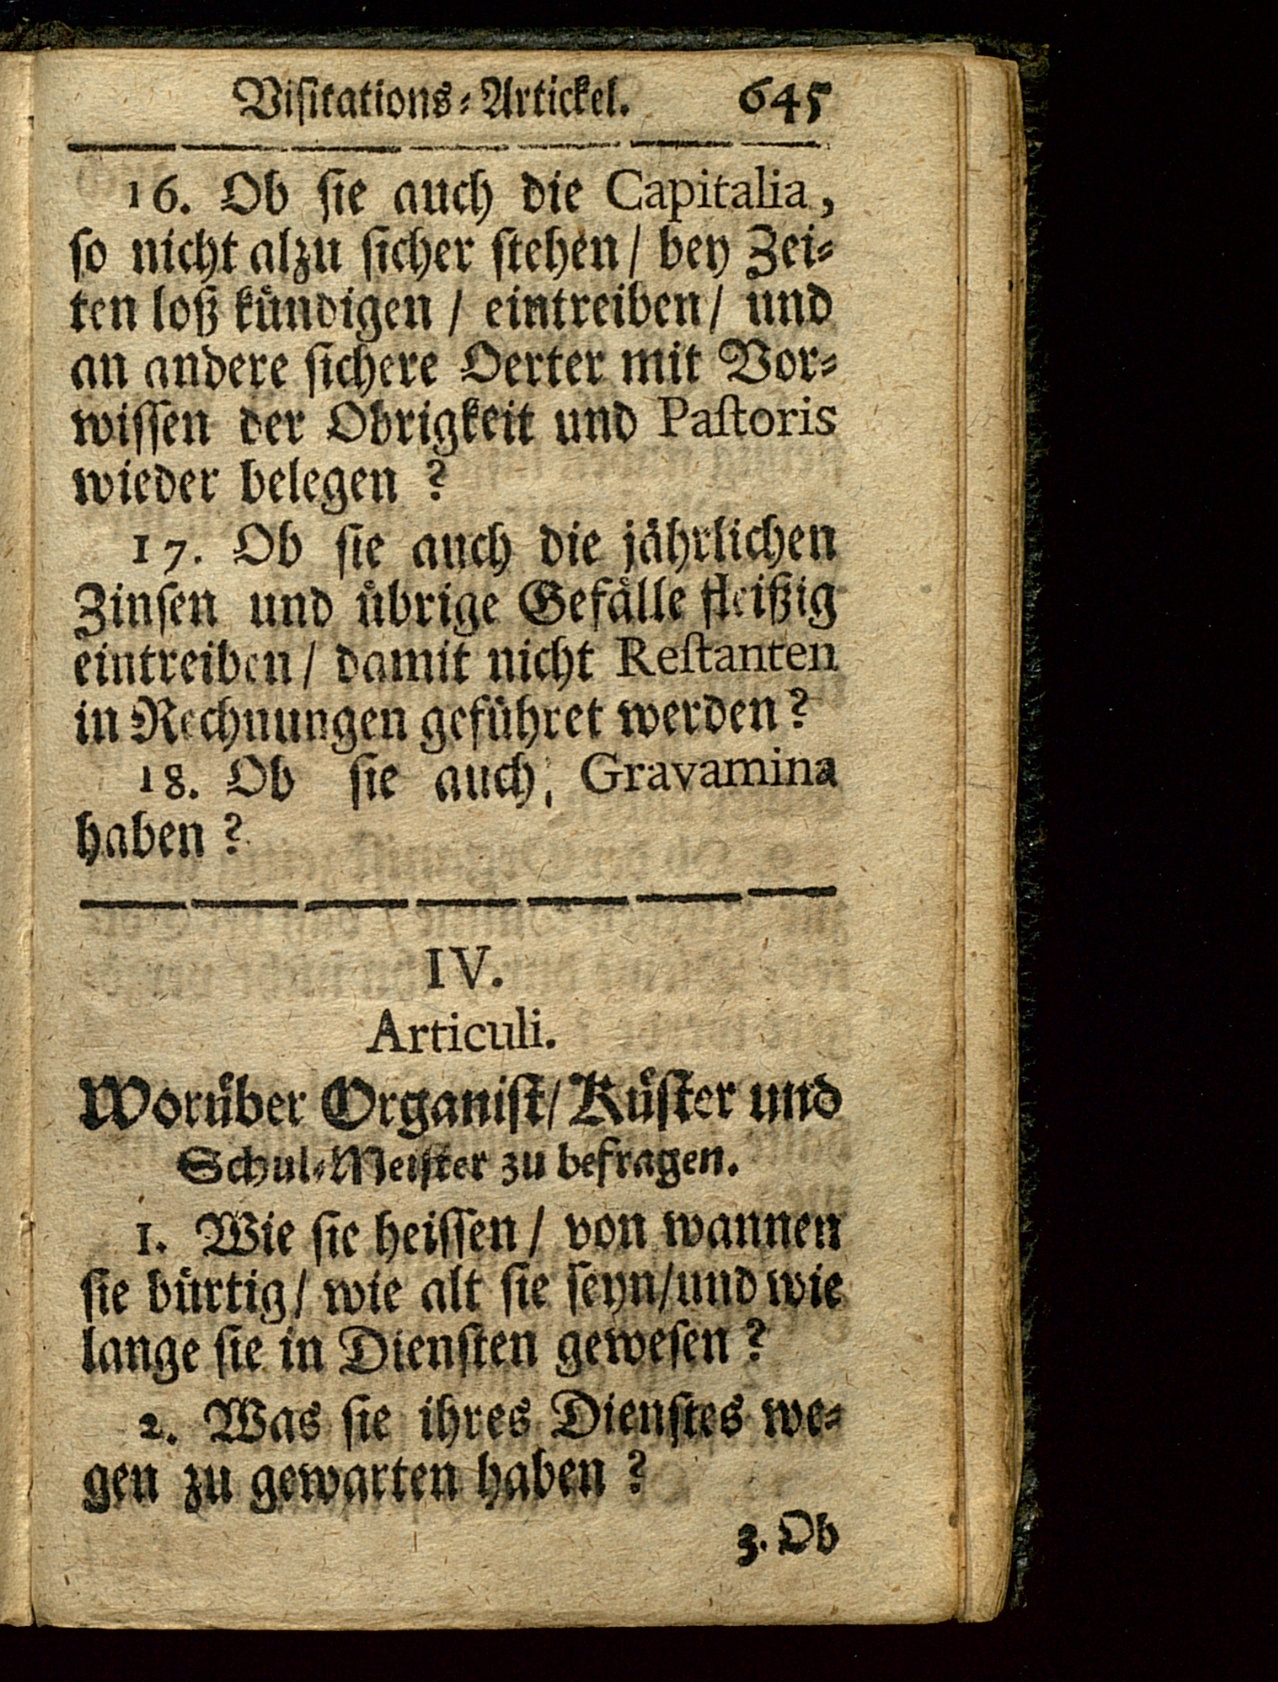 Visitations-Artickel. 645
16. Ob sie auch die Capitalia,
so nicht alzu sicher stehen / bey Zei-
ten loß kündigen / eintreiben / und
an andere sichere Oerter mit Vor-
wissen der Obrigkeit und Pastoris
wieder belegen ?
17. Ob sie auch die jährlichen
Zinsen und übrige Gefälle fleißig
eintreiben / damit nicht Restanten
in Rechnungen geführet werden ?
18. Ob sie auch, Gravamina
haben ?
IV.
Articuli.
Worüber Organist / Küster und
Schul-Meister zu befragen.
1. Wie sie heissen / von wannen
sie bürtig / wie alt sie seyn / und wie
lange sie in Diensten gewesen ?
2. Was sie ihres Dienstes we-
gen zu gewarten haben ?
3. Ob